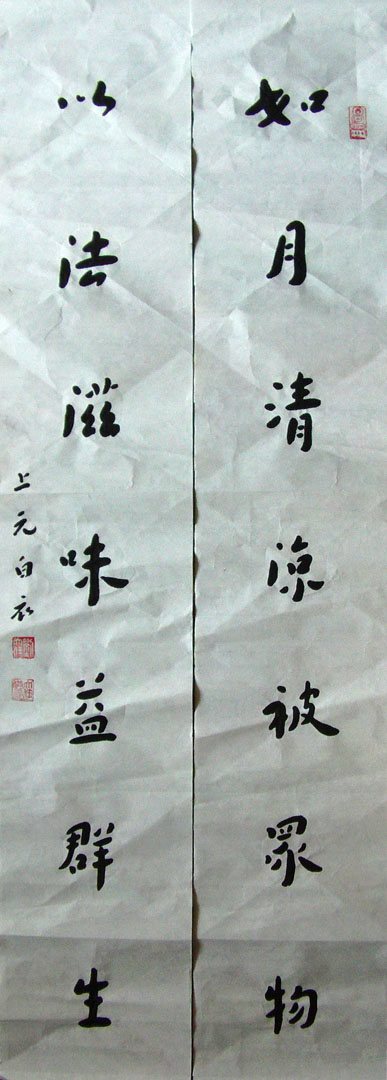 如月清涼被眾物
以法滋味益群生
上元白衣